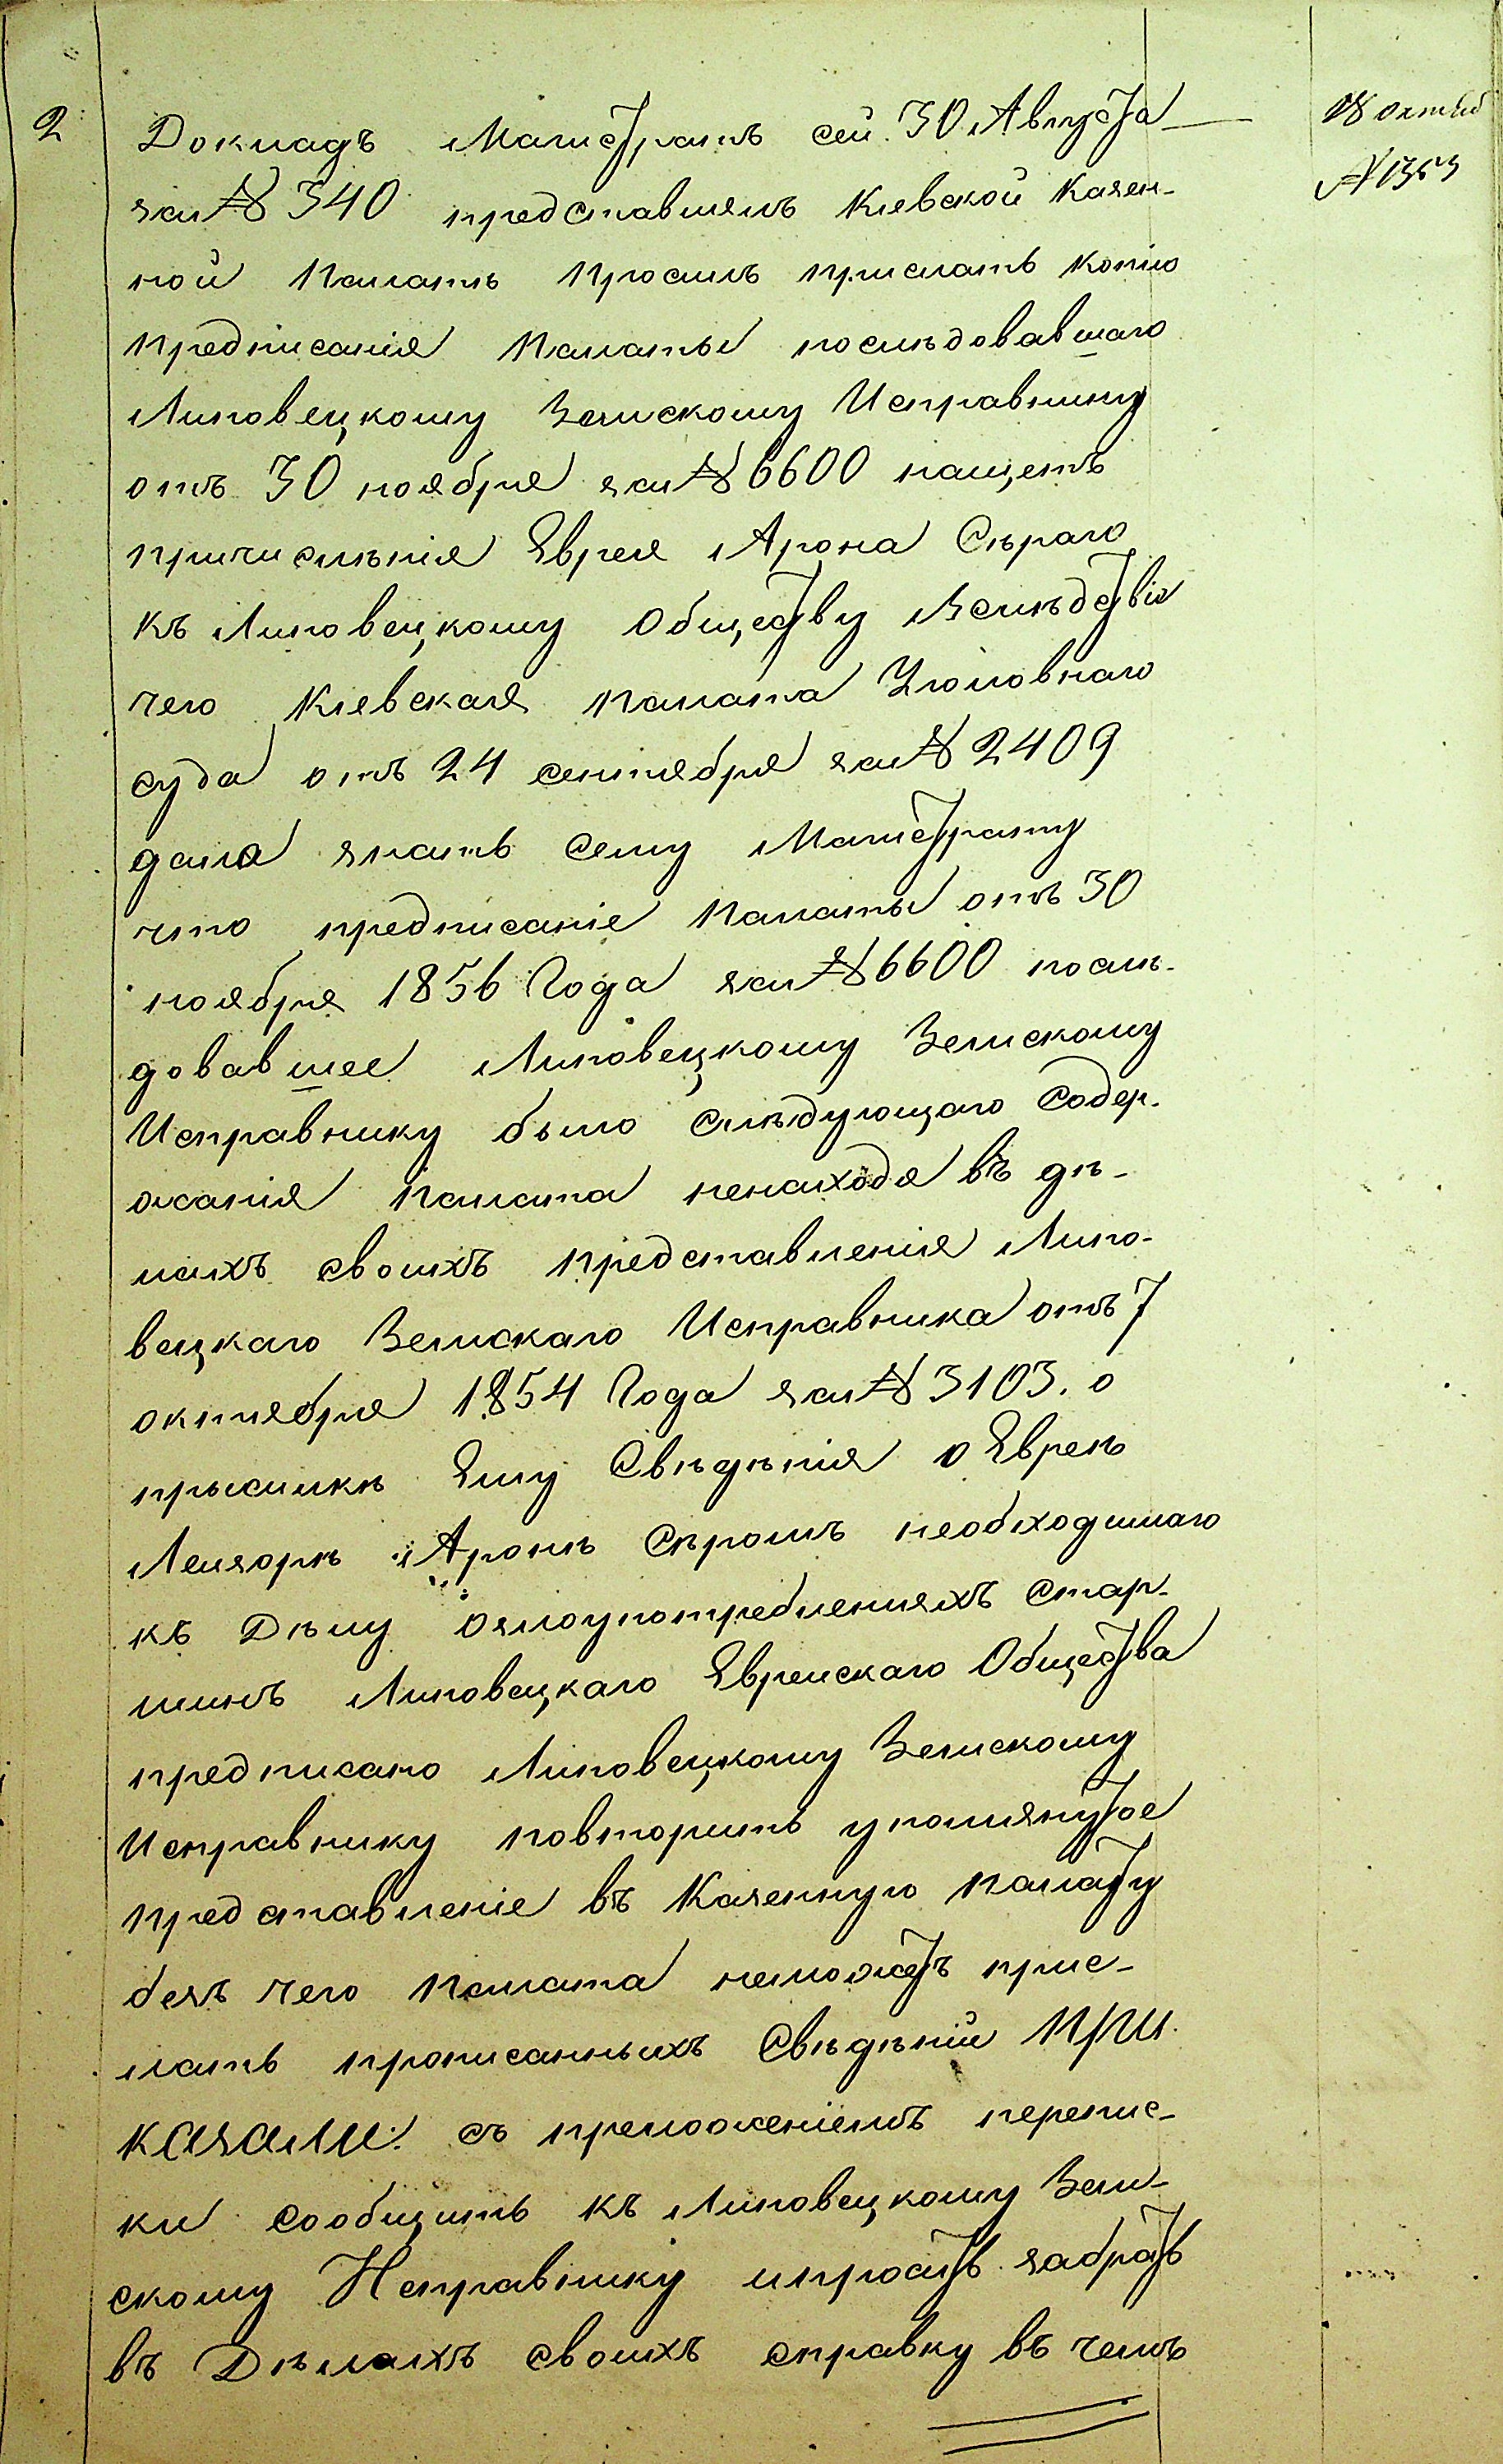 2
18 Октяб
№ 1353
Докладъ Магистратъ сей 30 Августа
за № 340 представивъ Кіевской Казен-
ной Палатѣ просилъ прислать копію
предписанія Палаты послѣдовавшаго
Липовецкому Земскому Исправнику
отъ 30 ноября за № 6600 нащетъ
причисленія Еврея Арона Сѣраго
къ Липовецкому Обществу Вслѣдствіе
чего Кіевская Палата Уголовнаго
суда отъ 24 сентября за № 2409
дала знать сему Магистрату
что предписаніе Палаты отъ 30
ноября 1856 Года за № 6600 послѣ-
довавшее Липовецкому Земскому
Исправнику было слѣдующаго содер-
жанія Палата ненаходя въ дѣ-
лахъ своихъ представленія Липо-
вецкаго Земскаго Исправника отъ 7
октября 1854 Года за № 3103. о
присилкѣ Ему Свѣдѣнія о Евреѣ
Лейзорѣ Аронѣ Сѣромъ необходимаго
къ Дѣлу озлоупотребленияхъ Стар-
шинъ Липовецкаго Еврейскаго Общества
предписано Липовецкому Земскому
Исправнику повторить упомянутое
представленіе въ Казенную Палату
безъ чего Палата неможетъ прис-
лать прописанныхъ Свѣдѣній При-
казали: съ прыложеніемъ перепис-
ки сообщить къ Липовецкому Зем-
скому Исправнику ипросить забрать
въ Дѣлахъ своихъ справку въ чемъ